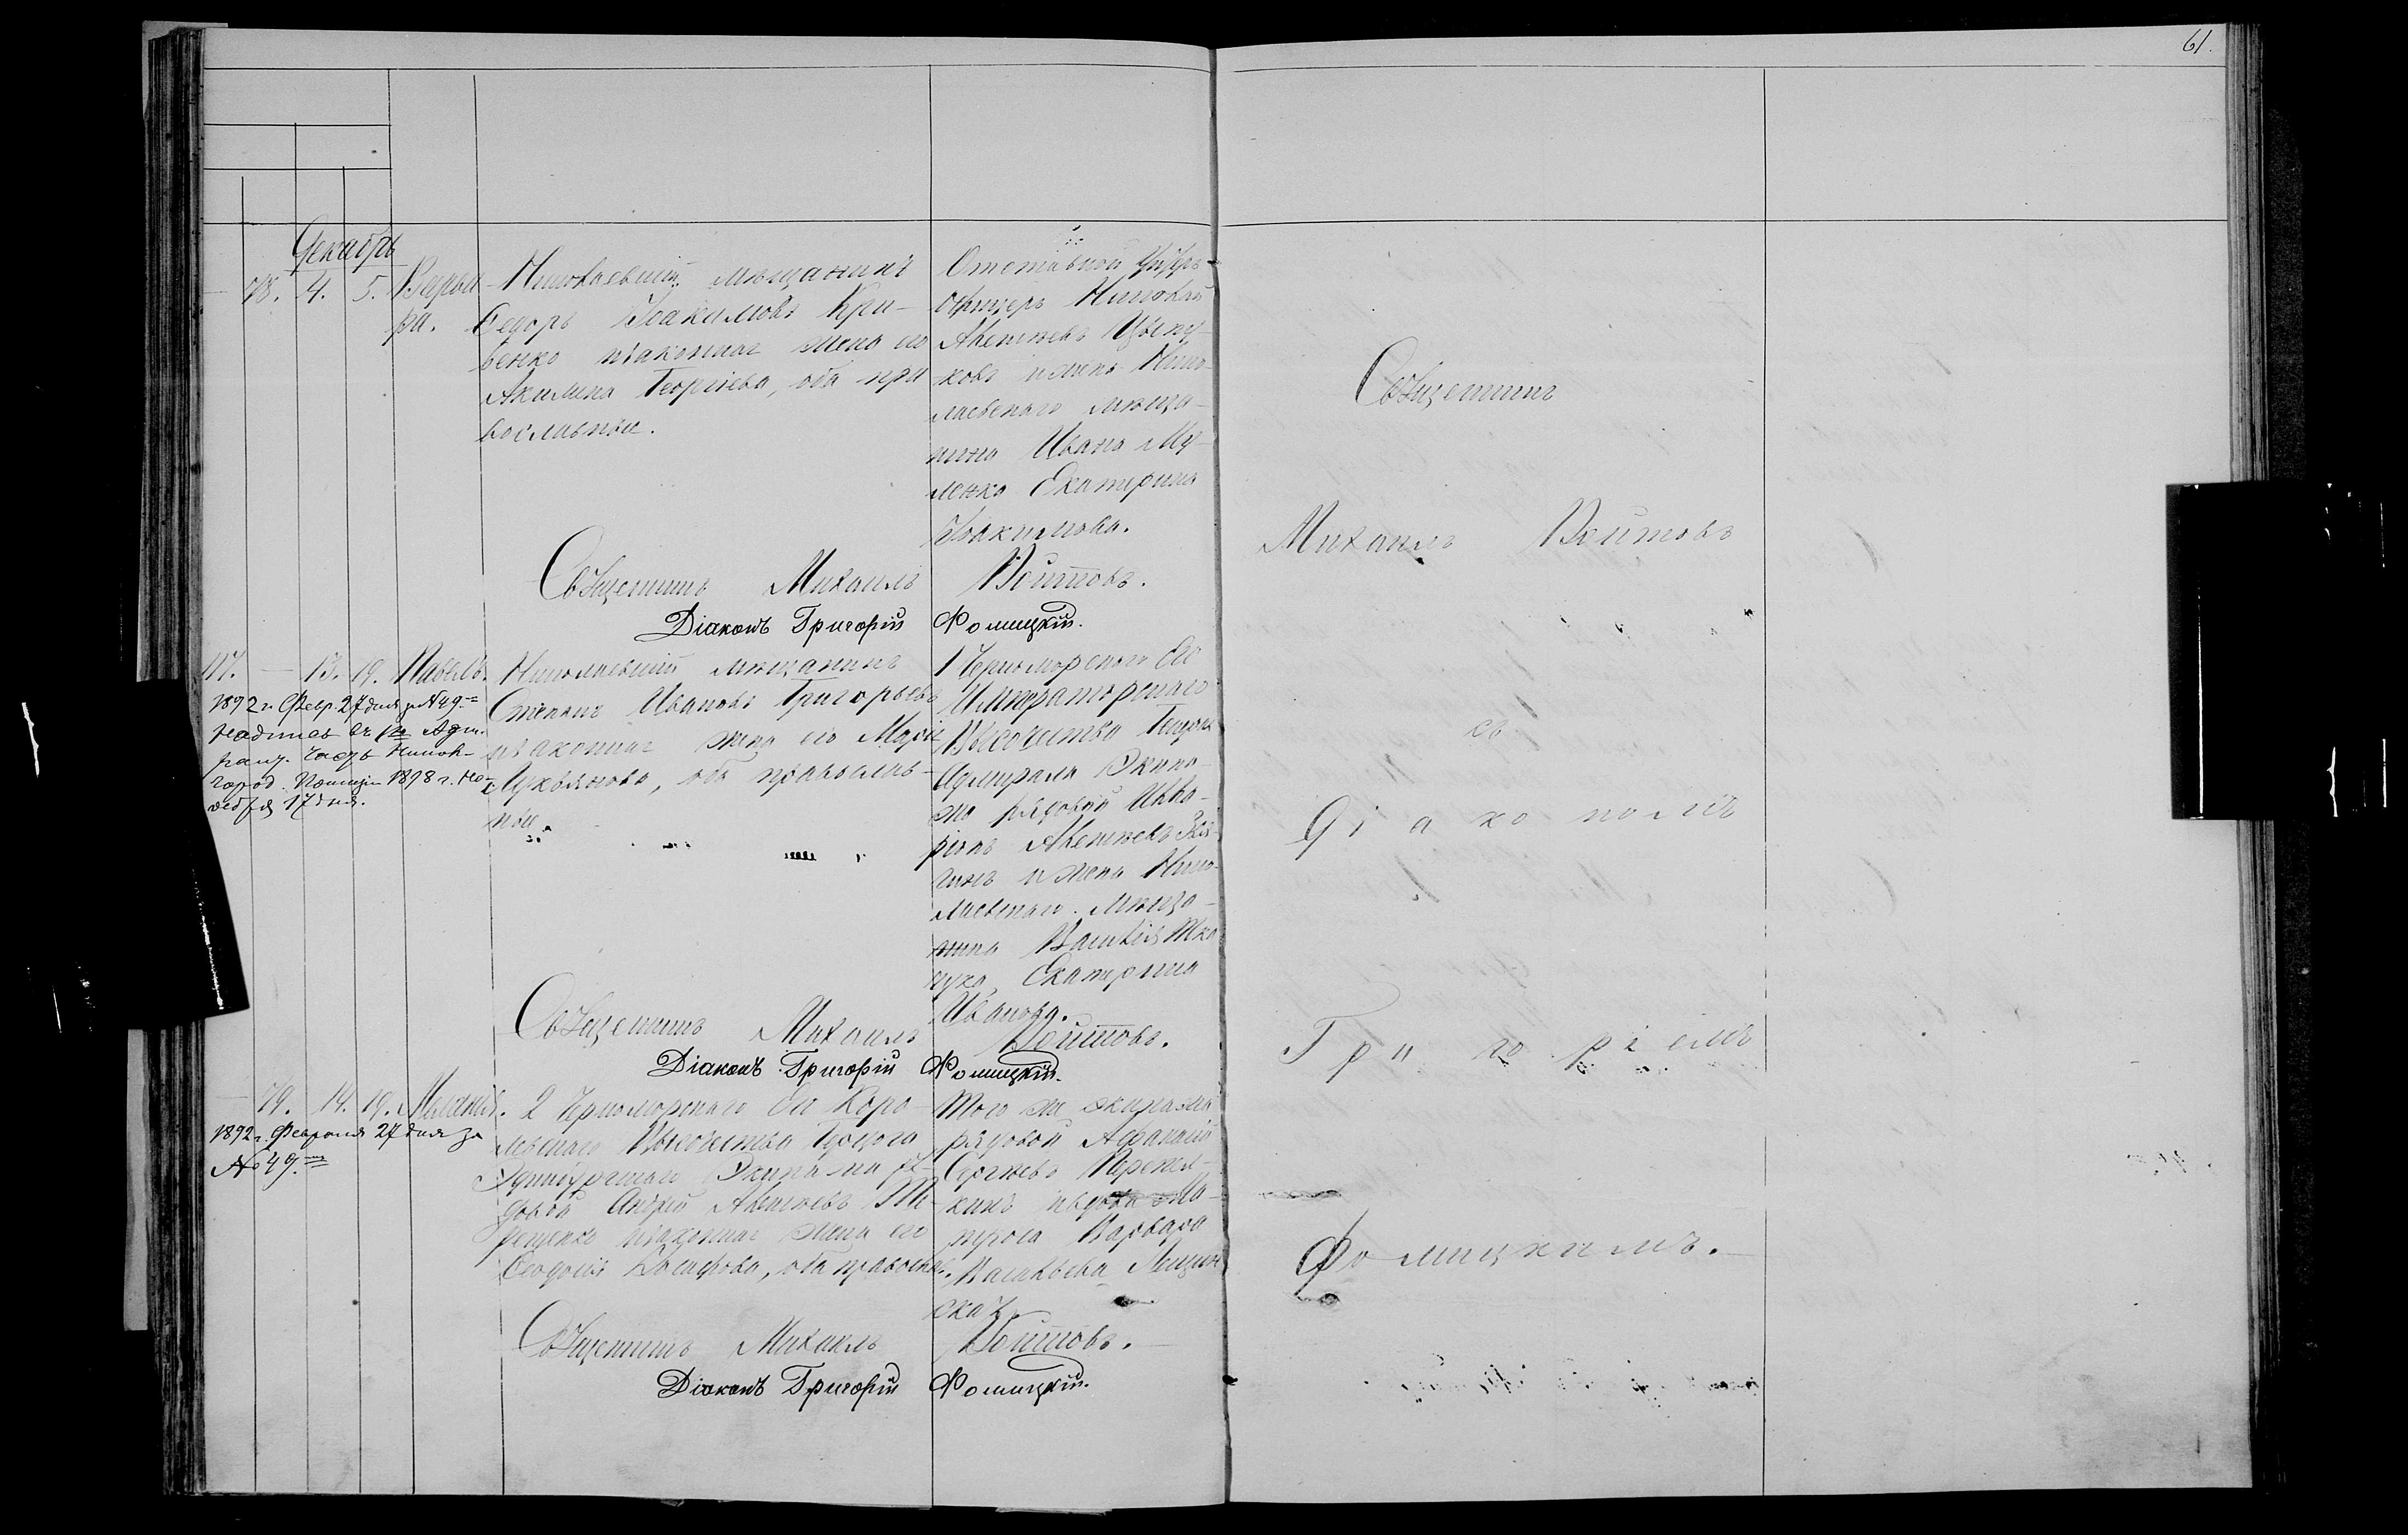 61.
Декабрь
78. 4. 5. Варва
ра.
Николаевскій мѣщанинъ
Ѳедоръ Іоакимовъ Кри-
венко и законная жена его
Акилина Георгіева, оба пра
вославные.
Отставной Унтеръ-
офицеръ Николай
Алексѣевъ
ковъ и жена Нико-
лаевскаго мѣща-
нина Ивана Му-
ленко Екатерина
Іоакимова.
Священникъ Михаилъ Войтовъ.
Діаконъ Григорій Фомицкій.
117. — 13. 19. Павелъ.
1892 г. Февр. 27 дня за № 49.
город. Полиціи 1898 г. Но-
ября 17 дня.
Николаевскій мѣщанинъ
Степанъ Ивановъ Григорьевъ
и законная жена его Марія
Лукьянова, оба православ-
ные.
1 Черноморскаго Его
Императорскаго
Высочества Генералъ
Адмирала Экипа-
жа рядовой Илла-
ріонъ Алексѣевъ
гинъ и жена Нико-
лаевскаго мѣща-
нина Василія Тка
чука, Екатерина
Иванова.
Священникъ Михаилъ Войтовъ.
Діаконъ Григорій Фомицкій.
— 79. 14. 19. Меланія.
1892 г. Февраля 27 дня за
№ 49.
2 Черноморскаго Его Коро-
левскаго Высочества Герцога
Эдинбургскаго Экипажа ря-
довой Андрей Алексѣевъ Те-
рещенко и законная жена его
Ѳеодосія Іосифова, оба православ.
Того же экипажа
рядовой Афанасій
Сергѣевъ Перепел-
кинъ и вдова Ма-
троса Варвара
Васильева Лещин
ская.
Священникъ Михаилъ Войтовъ.
Діаконъ Григорій Фомицкій.
Священникъ
Михаилъ Войтовъ
съ
Діакономъ
Григоріемъ
Фомицкимъ.